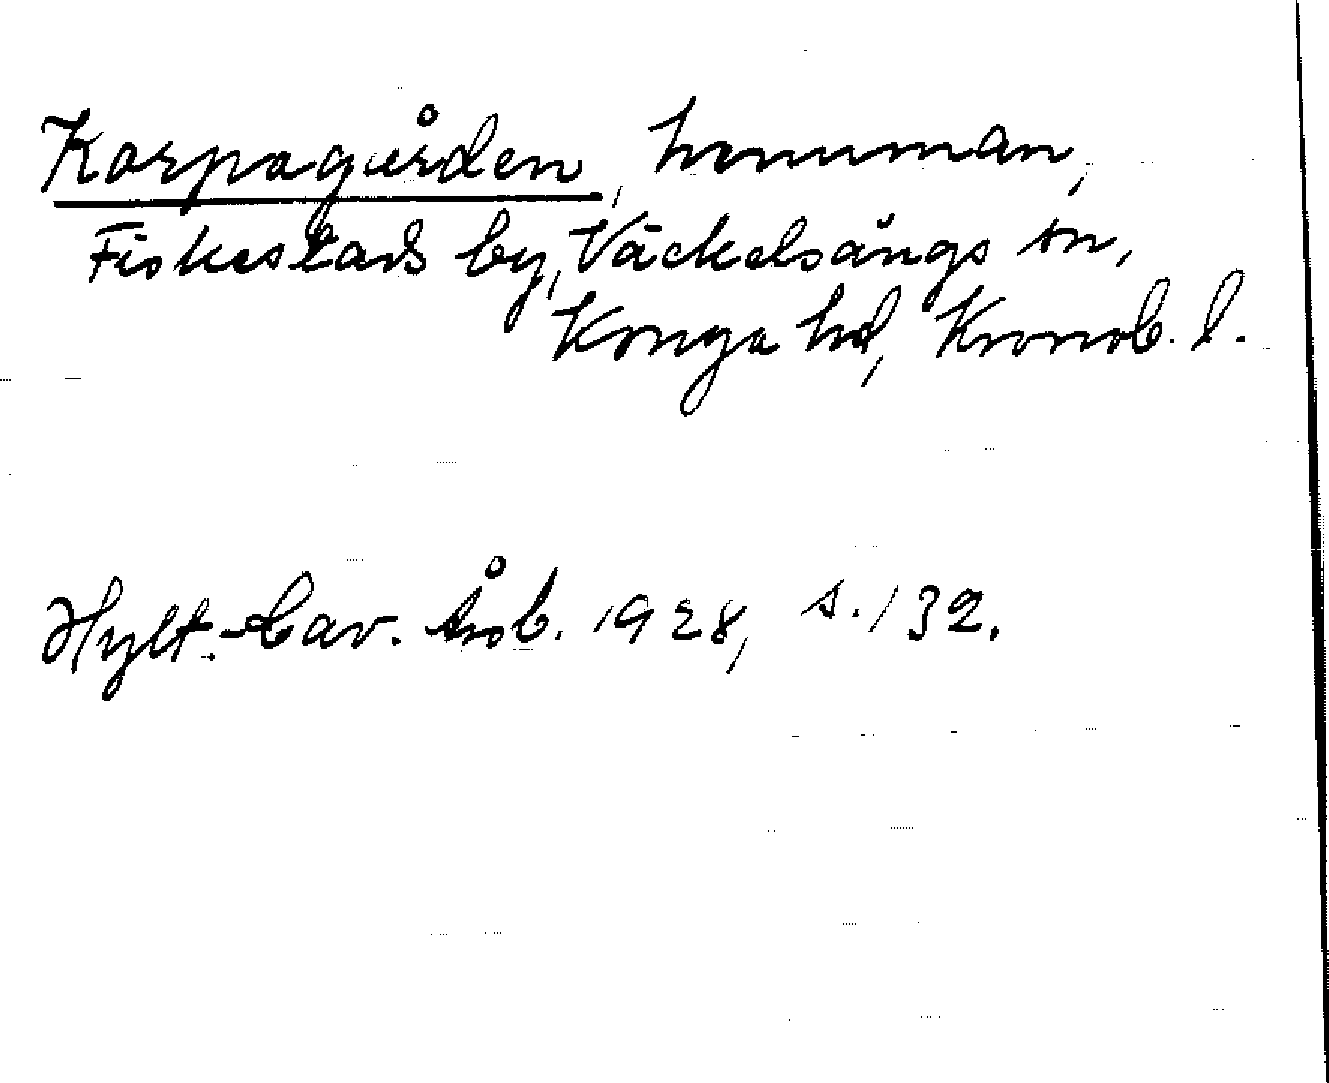 Korpagården, hemman,
Fiskestads by, Väckelsångs sn,
Konga hd, Kronob. l.
Hylt.-Cav. Årsb. 1928, s. 132.